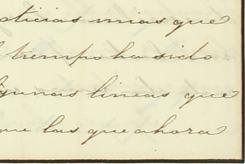 oticias mias que
l tiempo ha sido
lgunas lineas que
que las que ahora